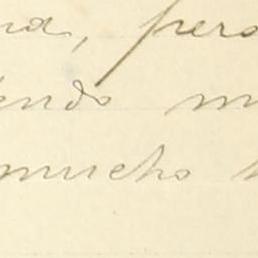 na, pero
endo m
mucho